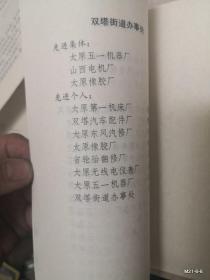 双塔街道办事处
先进集体：
太原五一机器厂
山西电机厂
太原橡胶厂
先进个人：
太原第一机床厂
双塔汽车配件厂
太原东风汽修厂
太原橡胶厂
省轮胎翻修厂
太原无线电仪表厂
太原五一机器厂
双塔街道办事处
M21-6-6